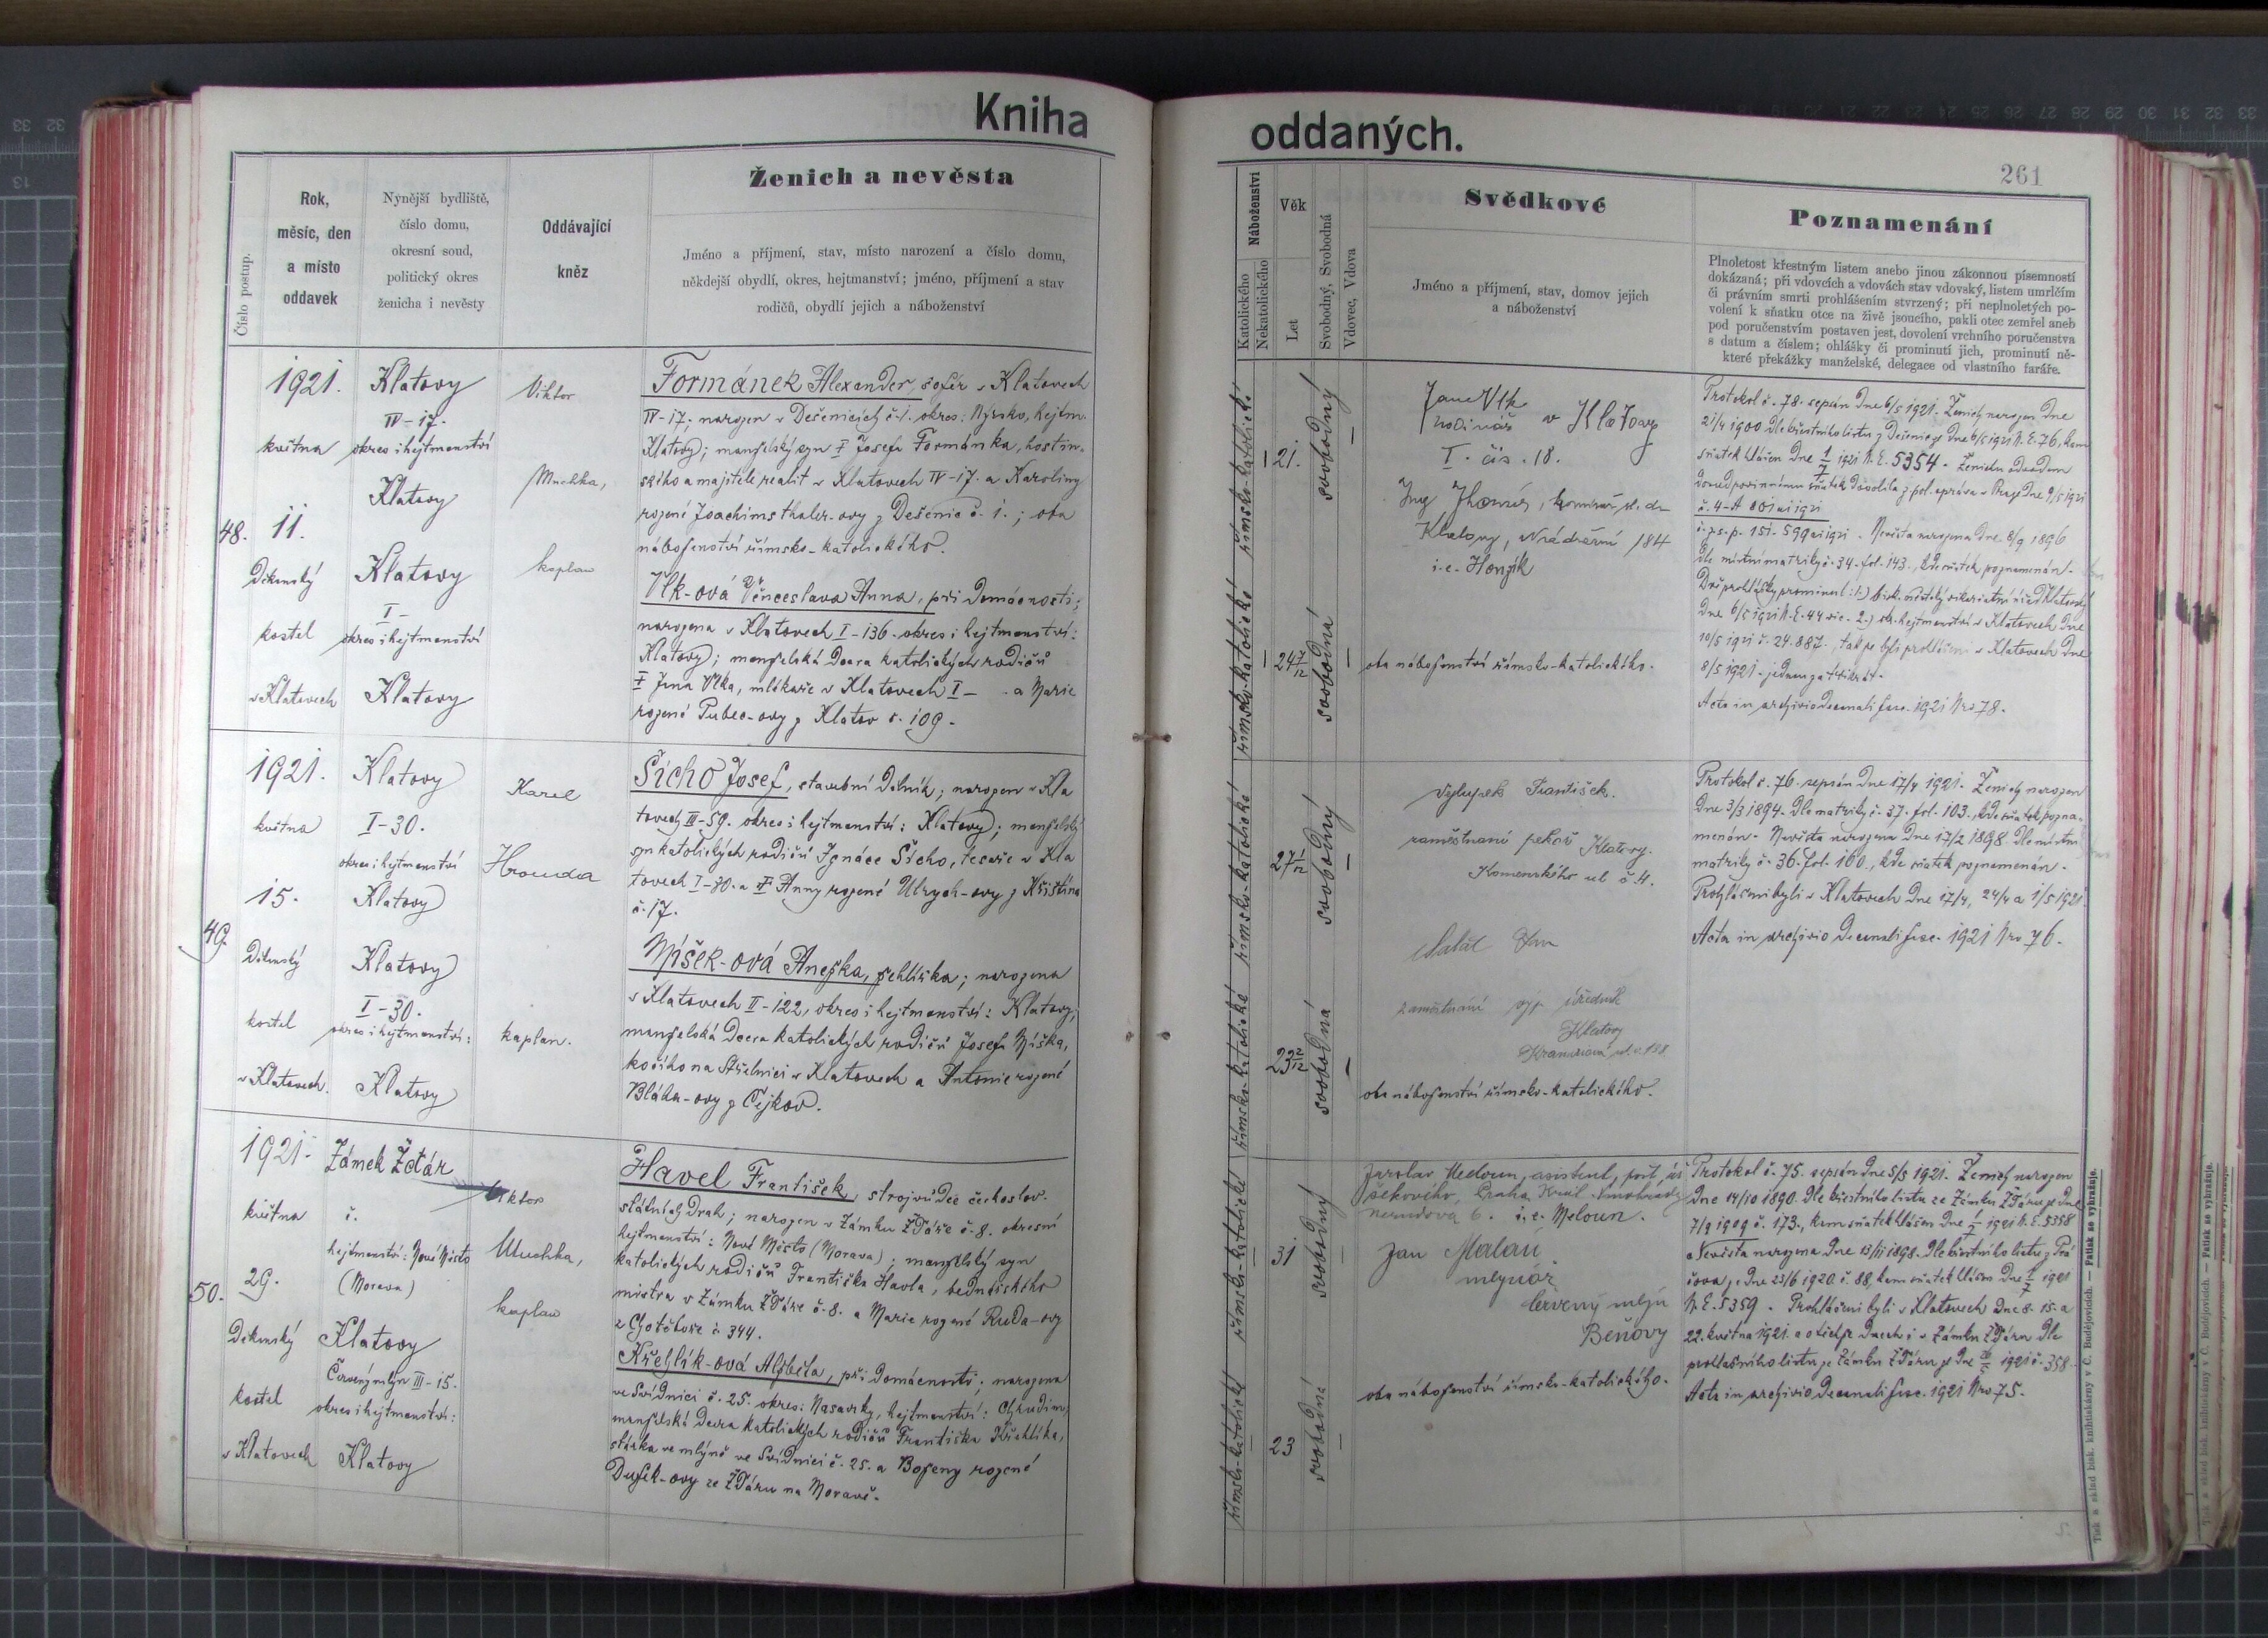 Kniha
Číslo postup.
Rok,
měsíc, den
a místo
oddavek
Nynější bydliště,
číslo domu,
okresní soud,
politický okres
ženicha i nevěsty
Oddávající
kněz
Ženich a nevěsta
Jméno a příjmení, stav, místo narození a číslo domu,
někdejší obydlí, okres, hejtmanství; jméno, příjmení a stav
rodičů, obydlí jejich a náboženství
48.
1921.
května
11.
Děkanský
kostel
v Klatovech
Klatovy
IV-17.
okres i hejtmanství
Klatovy
Klatovy
I-
okres i hejtmanství
Klatovy
Viktor
Muchka,
kaplan
Formánek Alexander, šofér v Klatovech
IV-17; narozen v Dešenicích č. 1. okres: Nýrsko, hejtm.
Klatovy; manželský syn † Josefa Formánka, hostin-
ského a majitele realit v Klatovech IV-17. a Karoliny
rozené Joachimsthaler-ovy z Dešenic č. 1.; oba
náboženství římsko-katolického.
Vlk-ová Věnceslava Anna, při domácnosti;
narozena v Klatovech I-136. okres i hejtmanství:
Klatovy; manželská dcera katolických rodičů
† Jana Vlka, mlékaře v Klatovech I- a Marie
rozené Pubec-ovy z Klatov č. 109.
49.
1921.
května
15.
Děkanský
kostel
v Klatovech.
Klatovy
I-30.
okres i hejtmanství
Klatovy
Klatovy
I-30.
okres i hejtmanství:
Klatovy
Karel
Hrouda
kaplan.
Šícho Josef, stavební dělník; narozen v Kla
tovech III-59. okres i hejtmanství: Klatovy; manželský
syn katolických rodičů Ignáce Šícho, tesaře v Kla
tovech I-30. a † Anny rozené Ulrych-ovy z Křištína
č. 17.
Míšek-ová Anežka, žehlířka; narozena
v Klatovech II-122, okres i hejtmanství: Klatovy;
manželská dcera katolických rodičů Josefa Míška,
kočího na Střelnici v Klatovech a Antonie rozené
Bláha-ovy z Čejkov.
50.
1921.
května
29.
Děkanský
kostel
v Klatovech
Zámek Žďár
č.
hejtmanství: Nové Město
(Morava)
Klatovy
Červený mlýn III-15.
okres i hejtmanství:
Klatovy
Viktor
Muchka,
kaplan
Havel František, strojvůdce českoslov.
státních drah; narozen v Zámku Žďáře č. 8. okresní
hejtmanství: Nové Město (Morava); manželský syn
katolických rodičů Františka Havla, bednářského
mistra v Zámku Žďáře č. 8. a Marie rozené Ruda-ovy
z Chotěboře č. 344.
Křehlík-ová Alžběta, při domácnosti; narozena
ve Svídnici č. 25. okres: Nasavrky, hejtmanství: Chrudim;
manželská dcera katolických rodičů Františka Křehlíka,
stárka ve mlýně ve Svídnici č. 25. a Boženy rozené
Dušek-ovy ze Žďáru na Moravě.
oddaných.
261
Náboženství
Katolického
Nekatolického
Věk
Let
Svobodný, Svobodná
Vdovec, Vdova
Svědkové
Jméno a příjmení, stav, domov jejich
a náboženství
Poznamenání
Plnoletost křestným listem anebo jinou zákonnou písemností
dokázaná; při vdovcích a vdovách stav vdovský, listem umrlčím
či právním smrti prohlášením stvrzený; při neplnoletých po-
volení k sňatku otce na živě jsoucího, pakli otec zemřel aneb
pod poručenstvím postaven jest, dovolení vrchního poručenstva
s datum a číslem; ohlášky či prominutí jich, prominutí ně-
které překážky manželské, delegace od vlastního faráře.
římsko-katolické
21.
svobodný
římsko-katolické
24 7/12
svobodná
Jan Vlk
hodinář v Klatovy
I. čís. 18.
Klatovy, Nádražní 184
i. e. Honzík
oba náboženství římsko-katolického.
Protokol č. 78. sepsán dne 6/5 1921. Ženich narozen dne
21/4 1900 dle křestního listu z Dešenic ze dne 6/5 1921 N. E. 76, kam
sňatek hlášen dne 1/7 1921 N. E. 5354.
Nevěsta narozena dne 8/9 1896
dle místní matriky č. 34. fol. 143., kde sňatek poznamenán.
10/5 1921 č. 24.887., takže byli prohlášeni v Klatovech dne
8/5 1921. jednou za třikrát.
Acta in archivio decanali fasc. 1921 Nro 78.
římsko-katolické
27 1/12
svobodný
římsko-katolické
23 2/12
svobodná
František.
zaměstnaní pekař Klatovy.
Komenského ul č 4.
Jan
zaměstnání úředník
Klatovy
oba náboženství římsko-katolického.
Protokol č. 76. sepsán dne 17/4 1921. Ženich narozen
dne 3/3 1894. dle matriky č. 37. fol. 103., kde sňatek pozna-
menán. Nevěsta narozena dne 17/2 1898. dle místní
matriky č. 36. fol. 160., kde sňatek poznamenán.
Prohlášeni byli v Klatovech dne 17/4, 24/4 a 1/5 1921.
Acta in archivio decanali fasc. 1921 Nro 76.
římsko-katolické
31
svobodný
římsko-katolické
23
svobodná
Jaroslav Meloun, asistent, pošt. úř.
šekového, Praha, Král. Vinohrady
Nerudova 6. i. e. Meloun.
Jan Malaú
mlynář
červený mlýn
Beňovy
oba náboženství římsko-katolického.
Protokol č. 75. sepsán dne 5/5 1921. Ženich narozen
dne 14/10 1890. dle křestního listu ze Zámku Žďáru ze dne
7/9 1909 č. 173., kam sňatek hlášen dne 1/7 1921 N. E. 5358
Nevěsta narozena dne 13/11 1898. dle křestního listu z Prá
čova ze dne 23/6 1920. č. 88, kam sňatek hlášen dne 1/7 1921
N. E. 5359. Prohlášeni byli v Klatovech dne 8. 15. a
22. května 1921. a v týchže dnech i v Zámku Žďáru dle
prohlašního listu ze Zámku Žďáru 1921 č. 358.
Acta in archivio decanali fasc. 1921 Nro 75.
Tisk a sklad bisk. knihtiskárny v Č. Budějovicích. — Patisk se vyhražuje.